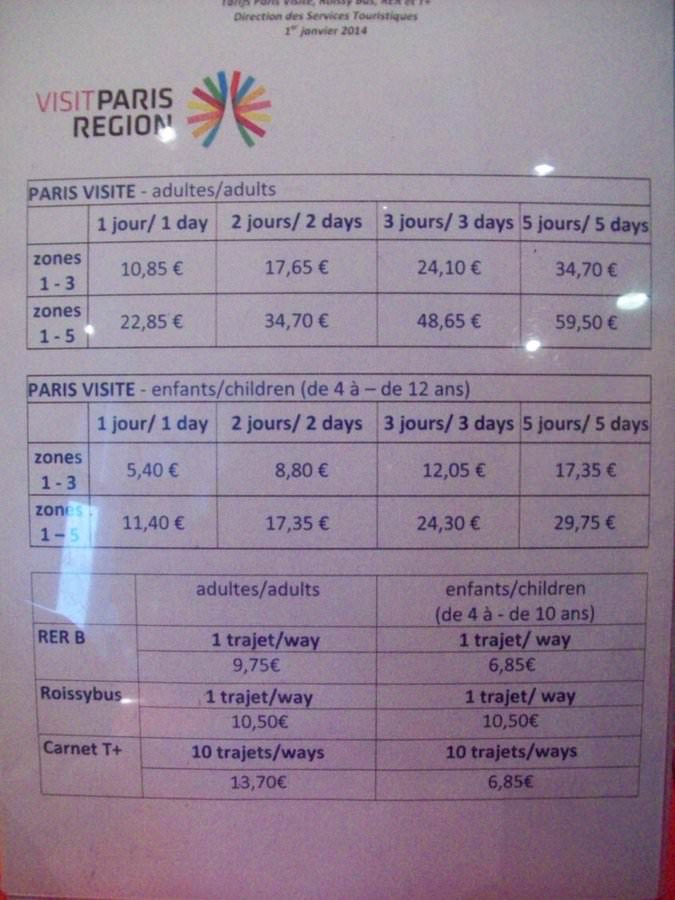 Tarifs Paris Visite, Roissy Bus, RER et T+
Direction des Services Touristiques
1er janvier 2014
VISITPARIS
REGION
PARIS VISITE - adultes/adults
1 jour/ 1 day 2 jours/ 2 days 3 jours/ 3 days 5 jours/ 5 days
zones
1 - 3 10,85 € 17,65 € 24,10 € 34,70 €
zones
1 - 5 22,85 € 34,70 € 48,65 € 59,50 €
PARIS VISITE - enfants/children (de 4 à – de 12 ans)
1 jour/ 1 day 2 jours/ 2 days 3 jours/ 3 days 5 jours/ 5 days
zones
1 - 3 5,40 € 8,80 € 12,05 € 17,35 €
zones
1 – 5 11,40 € 17,35 € 24,30 € 29,75 €
adultes/adults enfants/children
(de 4 à - de 10 ans)
RER B 1 trajet/way 1 trajet/ way
9,75€ 6,85€
Roissybus 1 trajet/way 1 trajet/ way
10,50€ 10,50€
Carnet T+ 10 trajets/ways 10 trajets/ways
13,70€ 6,85€